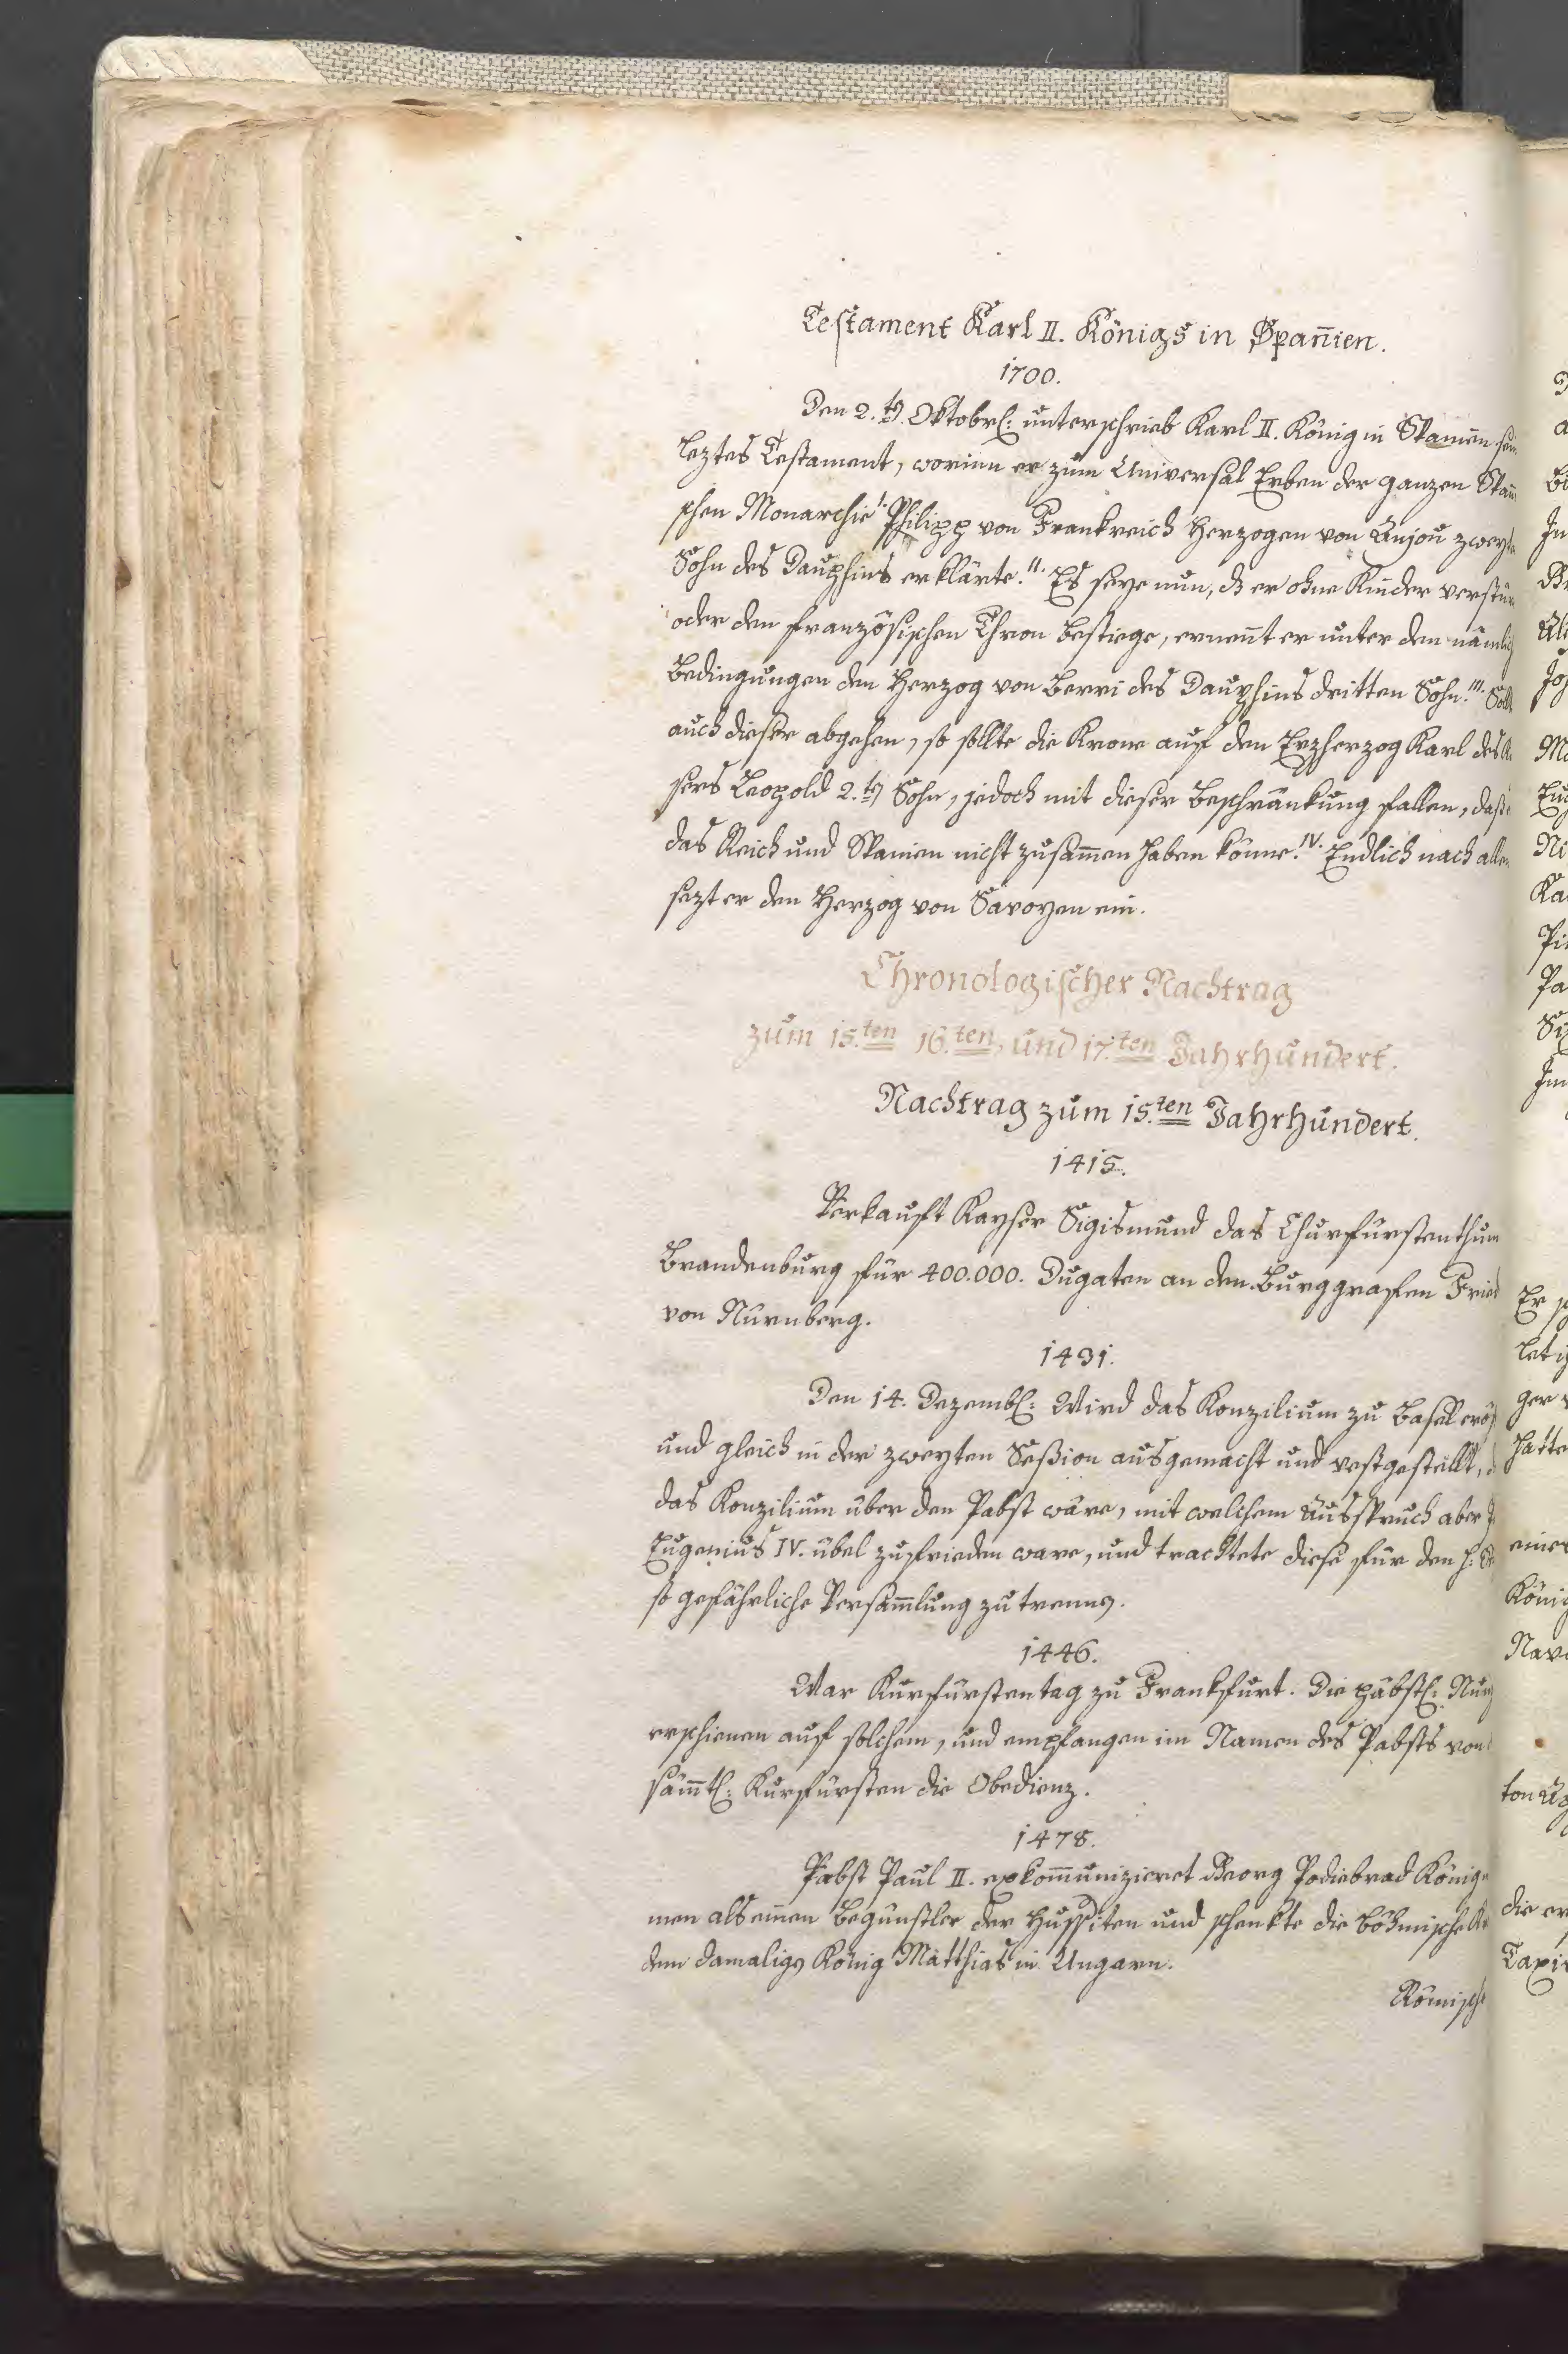 Testament Karl II. Königs in Span̄ien.
1700.
Den 2.ten Oktobrl: unterschrieb Karl II. König in Spanien sein
leztes Testament, worinn er zum Universal Erben der ganzen Span
schen Monarchie I. Philipp von Frankreich Herzogen von Anjou zweyte
Sohn des Dauphins erklärte. II. Es seye nun, dß er ohne Kinder verstür
oder den französischen Thron bestiege, ernen̄t er unter den nämlich
Bedingungen den Herzog von Berri des Dauphins dritten Sohn. III. Sollt
auch dieser abgehen, so sollte die Krone auf den Erzherzog Karl des
sers Leopold 2.ten Sohn, jedoch mit dieser Beschränkung fallen, daß
das Reich und Spanien nicht zusam̄en haben könne. IV. Endlich nach allen
sezt er den Herzog von Savoyen ein.
Chronologischer Nachtrag
zum 15.ten 16.ten, und 17.ten Jahrhundert.
Nachtrag zum 15.ten Jahrhundert.
1415.
Verkauft Kayser Sigismund das Churfürstenthum
Brandenburg für 400.000. Dugaten an den Burggrafen Fried
von Nürnberg.
1431.
Den 14. Dezembl: Wird das Konzilium zu Basel eröf
und gleich in der zweyten Seßion ausgemacht und vestgestellt,
das Konzilium über den Pabst wäre, mit welchem Ausspruch aber
Eugenius IV. übel zufrieden ware, und trachtete diese für den H:
so gefährliche Versam̄lung zu trennen.
1446.
War Kurfürstentag zu Frankfurt. Die päbstl: Nunz
erschienen auf solchem, und empfangen im Namen des Pabsts von
säm̄tl: Kurfürsten die Obedienz.
1478.
Pabst Paul II. exkom̄unizieret Georg Podiebrad König
men als einen Begünstler der Hussiten und schenkte die böhmische
dem damaligen König Matthias in Ungarn.
Römisch